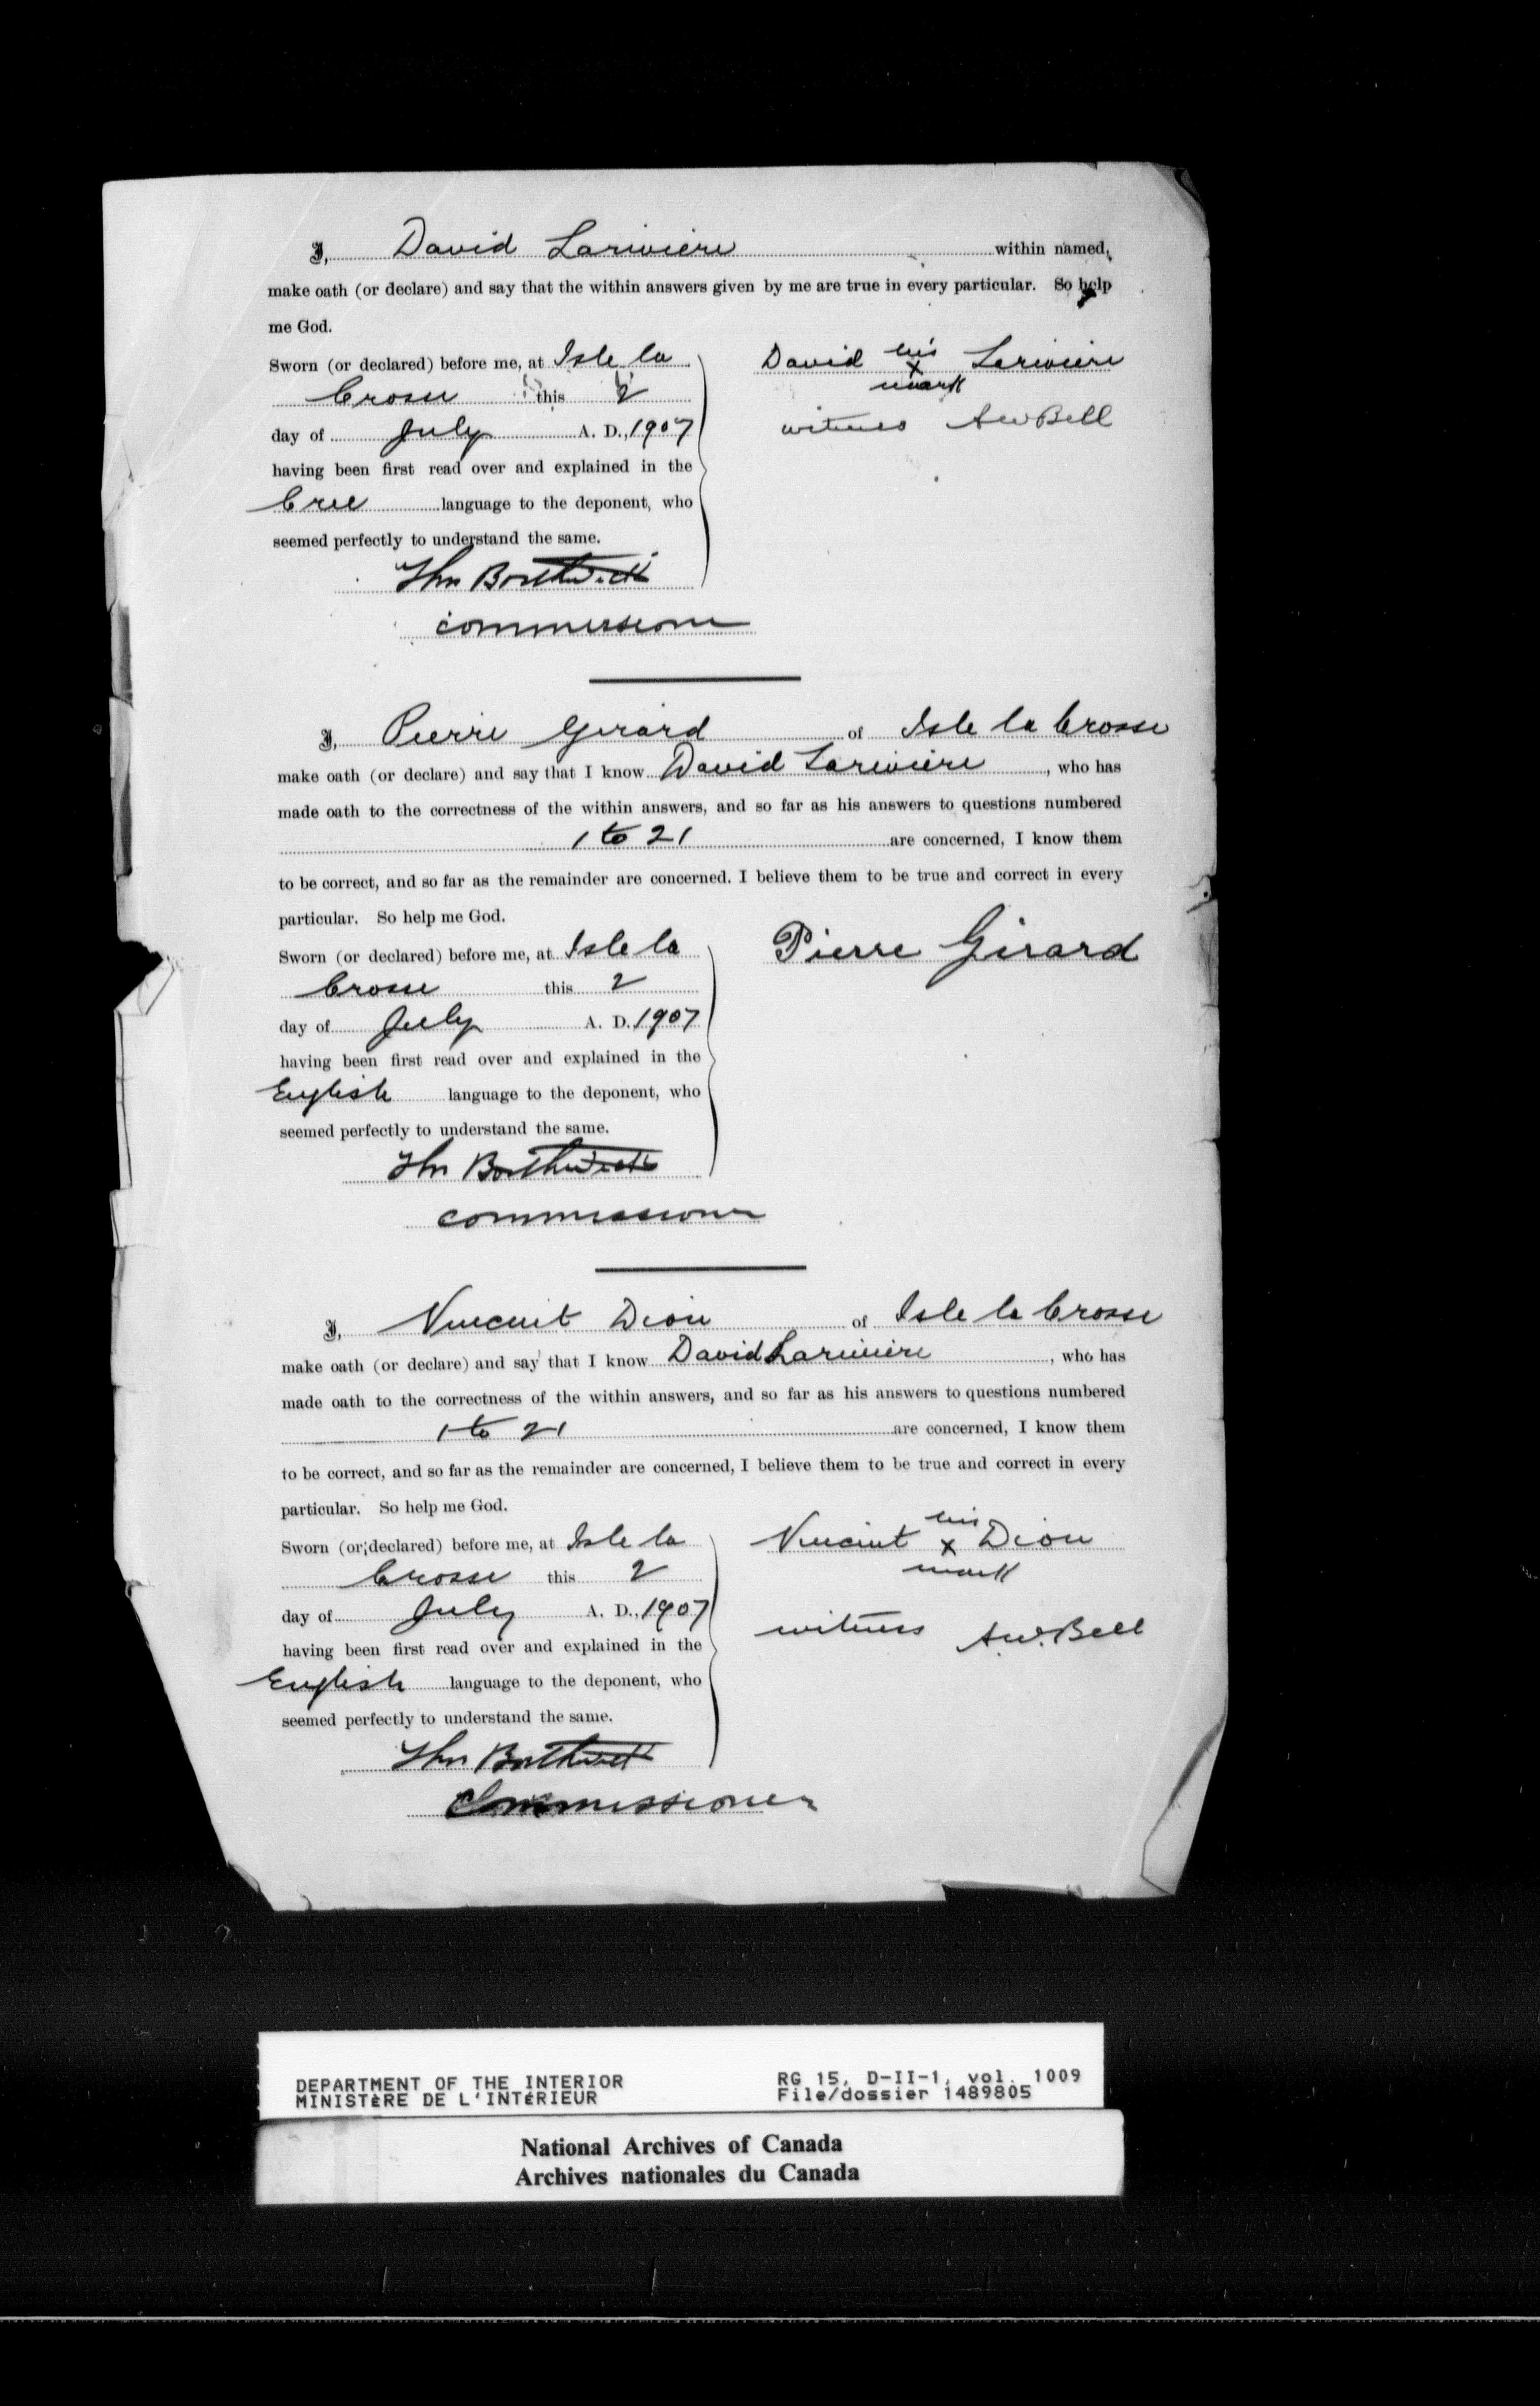 I, David Lariviere within named,
make oath (or declare) and say that the within answers given by me are true in every particular. So help
me God.
Sworn (or declared) before me, at Isle la
Crosse this 2
day of July A. D., 1907
having been first read over and explained in the
Cree language to the deponent, who
seemed perfectly to understand the same.
Thos Borthwick
commissioner
David his x mark Lariviere
witness A W Bell
I, Pierre Girard of Isle la Crosse
make oath (or declare) and say that I know David Lariviere, who has
made oath to the correctness of the within answers, and so far as his answers to questions numbered
1 to 21 are concerned, I know them
to be correct, and so far as the remainder are concerned. I believe them to be true and correct in every
particular. So help me God.
Sworn (or declared) before me, at Isle la
Crosse this 2
day of July A. D. 1907
having been first read over and explained in the
English language to the deponent, who
seemed perfectly to understand the same.
Thos Borthwick
commissioner
Pierre Girard
I, Vincent Dion of Isle la Crosse
make oath (or declare) and say that I know David Lariviere, who has
made oath to the correctness of the within answers, and so far as his answers to questions numbered
1 to 21 are concerned, I know them
to be correct, and so far as the remainder are concerned, I believe them to be true and correct in every
particular. So help me God.
Sworn (or declared) before me, at Isle la
Crosse this 2
day of July A. D., 1907
having been first read over and explained in the
English language to the deponent, who
seemed perfectly to understand the same.
Thos Borthwick
Commissioner
Vincent his x mark Dion
witness A. W. Bell
DEPARTMENT OF THE INTERIOR RG 15, D-II-1, vol. 1009
MINISTÈRE DE L'INTÉRIEUR File/dossier 1489805
National Archives of Canada
Archives nationales du Canada